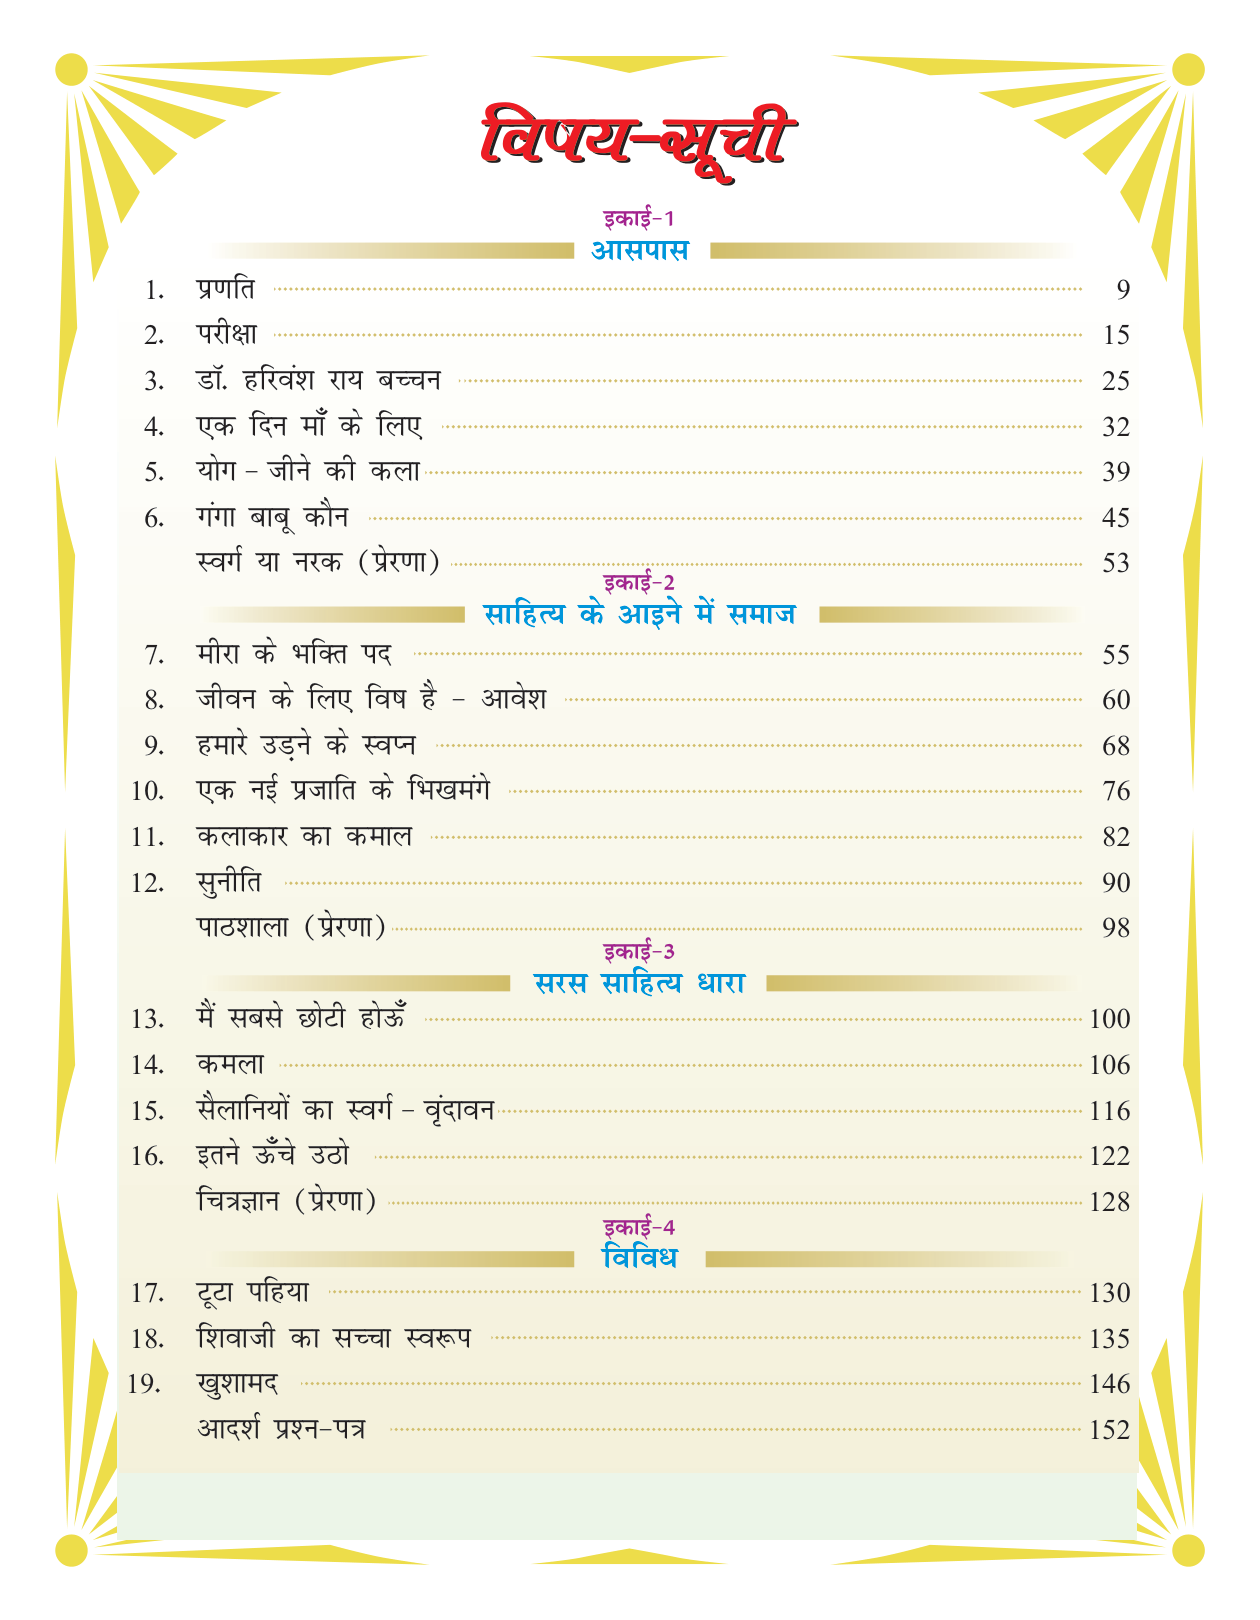 विषय-सूची
इकाई-1
आसपास
1. प्रणति 9
2. परीक्षा 15
3. डॉ. हरिवंश राय बच्चन 25
4. एक दिन माँ के लिए 32
5. योग - जीने की कला 39
6. गंगा बाबू कौन 45
स्वर्ग या नरक (प्रेरणा) 53
इकाई-2
साहित्य के आइने में समाज
7. मीरा के भक्ति पद 55
8. जीवन के लिए विष है - आवेश 60
9. हमारे उड़ने के स्वप्न 68
10. एक नई प्रजाति के भिखमंगे 76
11. कलाकार का कमाल 82
12. सुनीति 90
पाठशाला (प्रेरणा) 98
इकाई-3
सरस साहित्य धारा
13. मैं सबसे छोटी होऊँ 100
14. कमला 106
15. सैलानियों का स्वर्ग - वृंदावन 116
16. इतने ऊँचे उठो 122
चित्रज्ञान (प्रेरणा) 128
इकाई-4
विविध
17. टूटा पहिया 130
18. शिवाजी का सच्चा स्वरूप 135
19. खुशामद 146
आदर्श प्रश्न-पत्र 152